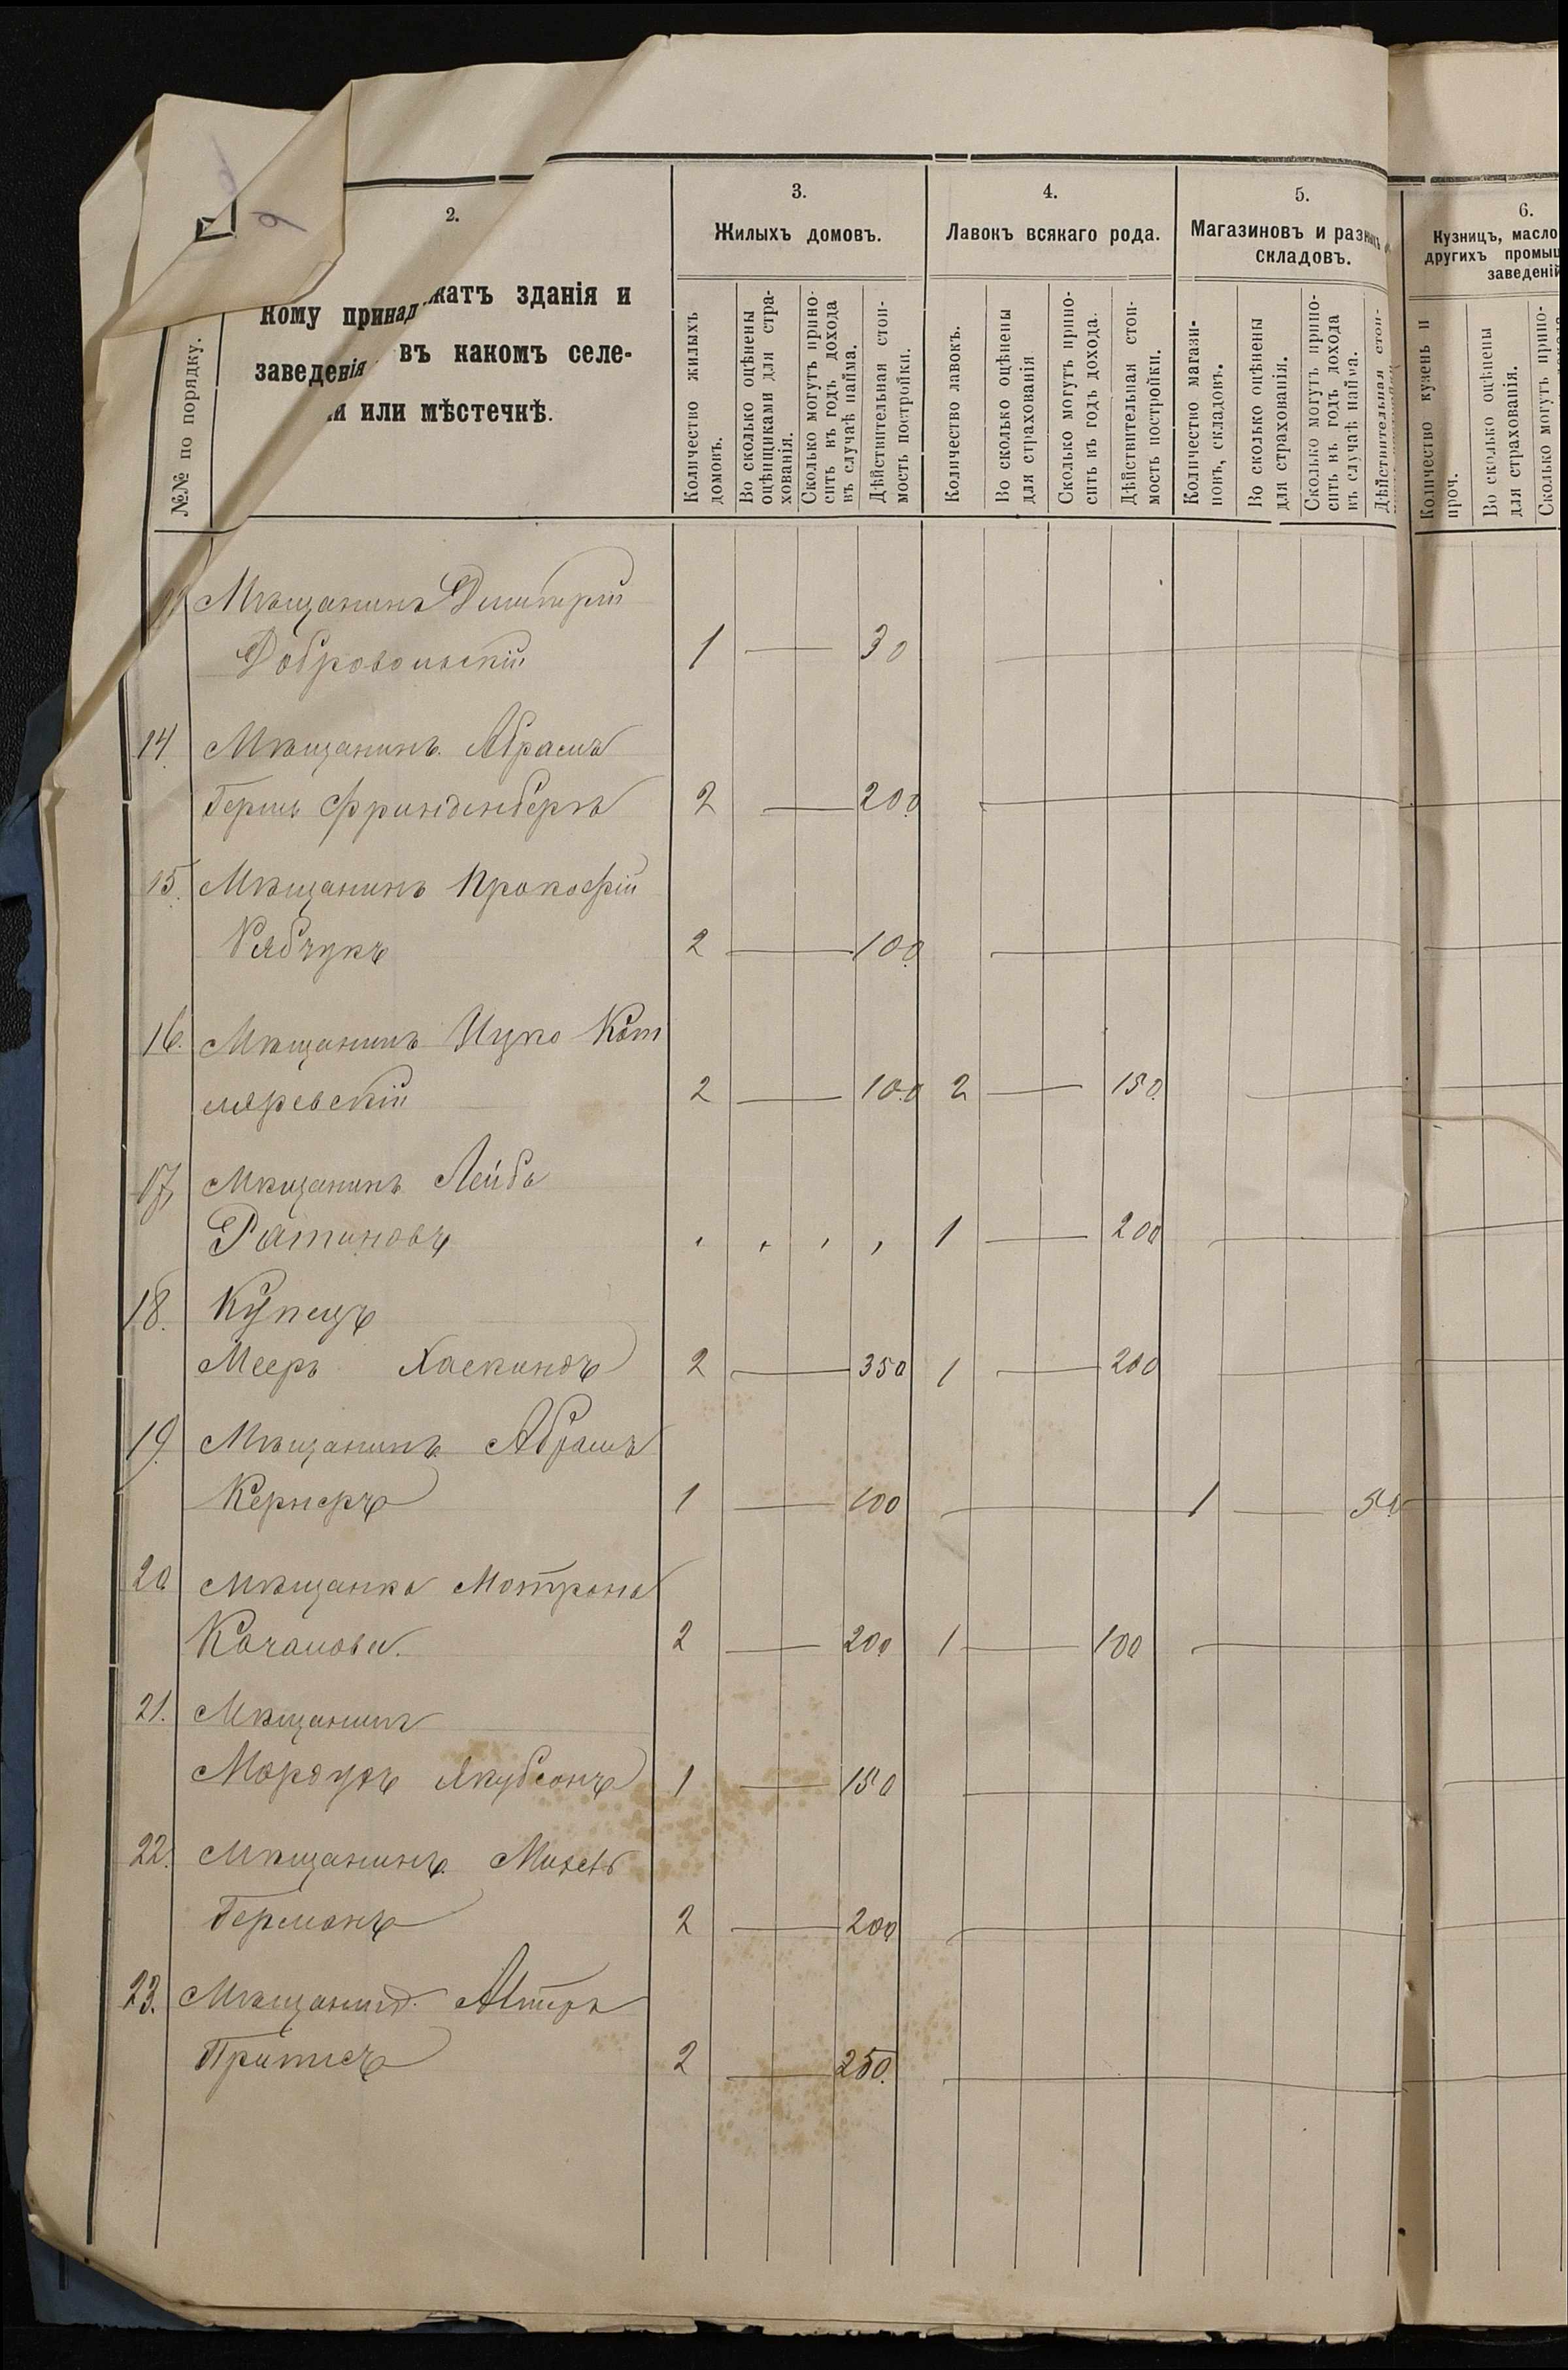 2.
Кому принад
жатъ зданія и
заведенія
въ какомъ селе-
и или мѣстечкѣ.
№№ по порядку.
3.
Жилыхъ домовъ.
Количество жилыхъ
домовъ.
Во сколько оцѣнены
оцѣнщиками для стра-
хованія.
Сколько могутъ прино-
сить въ годъ дохода
въ случаѣ найма.
Дѣйствительная стои-
мость постройки.
4.
Лавокъ всякаго рода.
Количество лавокъ.
Во сколько оцѣнены
для страхованія
Сколько могутъ прино-
сить въ годъ дохода.
Дѣйствительная стои-
мость постройки.
5.
Магазиновъ и разныхъ
складовъ.
Количество магази-
новъ, складовъ.
Во сколько оцѣнены
для страхованія.
Сколько могутъ прино-
сить въ годъ дохода
въ случаѣ найма.
Дѣйствительная стои-
6.
Кузницъ, масло
другихъ промыш
заведеній
Количество кузень и
проч.
Во сколько оцѣнены
для страхованія.
Сколько могутъ прино-
Мѣщанинъ Дмитрій
Добровольскій 1 — 30 —
14. Мѣщанинъ Абрамъ
Гершъ Фринденбергъ 2 — 200 —
15. Мѣщанинъ Прокофій
Рябчукъ 2 — 100 —
16. Мѣщанинъ Ицко Кот
ляревскій 2 — 100 2 — 150 —
17. Мѣщанинъ Лейба
Ратиновъ 1 — 200 —
18. Купецъ
Мееръ Хаскиндъ 2 — 350 1 — 200 —
19. Мѣщанинъ Абрамъ
Кернеръ 1 — 100 — 1 — 50 —
20 Мѣщанка Мотрона
Качанова. 2 — 200 1 — 100 —
21. Мѣщанинъ
Мордухъ Якубсонъ 1 — 150 —
22. Мѣщанинъ
Германъ 2 — 200 —
23. Мѣщанинъ Алтеръ
2 — 250. —